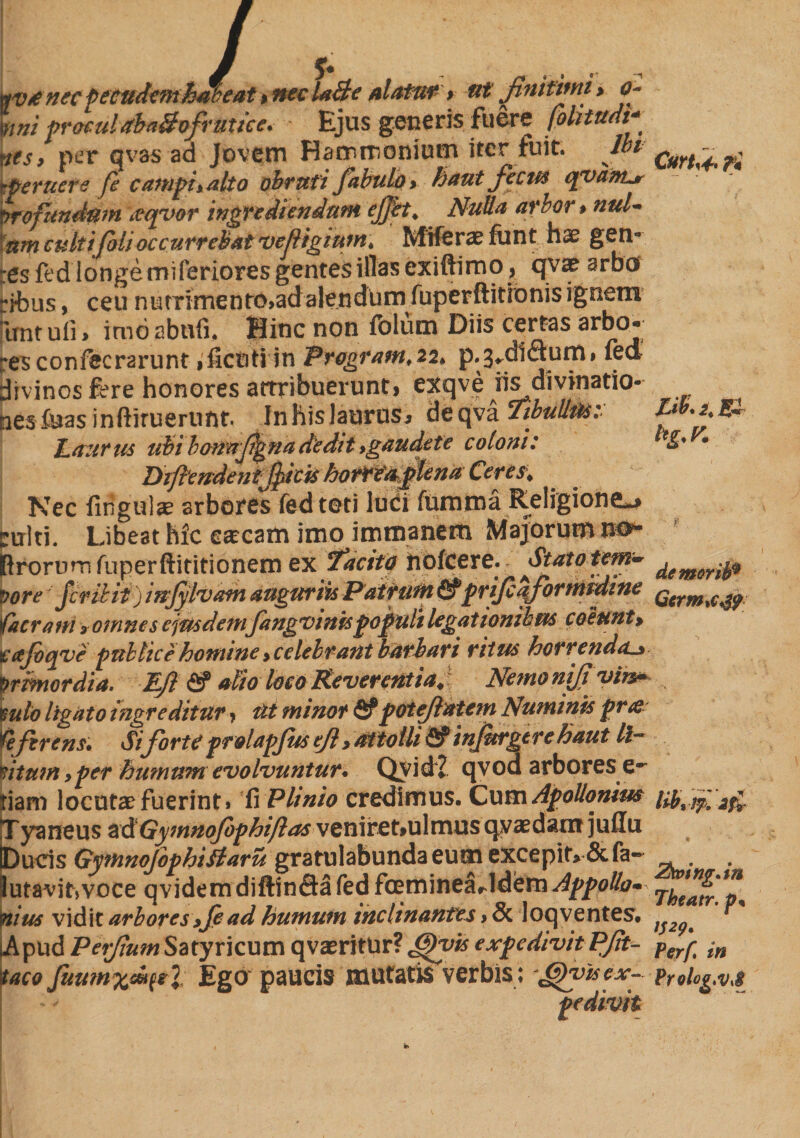 5.
qvæ nec pecudem habeat, nec lacte alatur, ut finitimi, o-
mni procul abacto frutice. Ejus generis fuêre solitudi-
nes, per qvas ad Jovem Hammonium iter fuit. Ibi
aperuere se campi, alto obruti sabulo, haut secus qvam
profundum æqvor ingrediendum esset. Nulla arbor, nul-
lum culti soli occurrebat vestigium. Miseræ sunt hæ gen-
tes sed longè miseriores gentes illas existimo, qvæ arbo
ribus, ceu nutrimento, ad alendum superstitionis ignem
sunt usi, imò abusi. Hinc non solùm Diis certas arbo-
res consecrarunt, sicuti in Program. 22. p. 3. dictum, sed
divinos fere honores attribuerunt, exqvè iis divinatio-
nes suas instituerunt. In his laurus, de qvâ Tibullus:
Laurus ubi bona signa dedit, gaudete coloni:
Distendent spicis horrea plena Ceres.
Nec singulæ arbores sed toti luci summâ Religione
culti. Libeat hîc cæcam imo immanem Majorum no-
strorum superstititionem ex Tacito noscere. Stato tem-
pore scribit) in sylvam auguriis Patrum & priscâ formidine
sacram, omnes ejusdem sangvinis populi legationibus coëunt,
cæsoqve publicè homine, celebrant barbari ritus horrenda
primordia. Est & alio loco Reverentia. Nemo nisi vin-
culo ligato ingreditur, ut minor & potestatem Numinis præ
se ferens. Si forte prolapsus est, attolli & insurgere haut li-
citum, per humum evolvuntur. Qvid? qvod arbores e-
tiam locutæ fuerint, si Plinio credimus. Cum Apollonius
Tyaneus ad Gymnosophistas veniret, ulmus qvædam jussu
Ducis Gymnosophistarũ gratulabunda eum excepit, & sa-
lutavit, voce qvidem distinctâ sed fœmineâ. Idem Appollo-
nius vidit arbores, se ad humum inclinantes, & loqventes.
Apud Persium Satyricum qværitur? Qvis expedivit Psit-
taco suum χαῖρε? Ego paucis mutatis verbis: Qvis ex-
pedivit
Curt. 4. 7.
Lib. 2. El-
leg. V.
de morib9
Germ. c. 39
Zwing. in
Theatr. p.
1529.
Pers. in
Prolog. v. 8